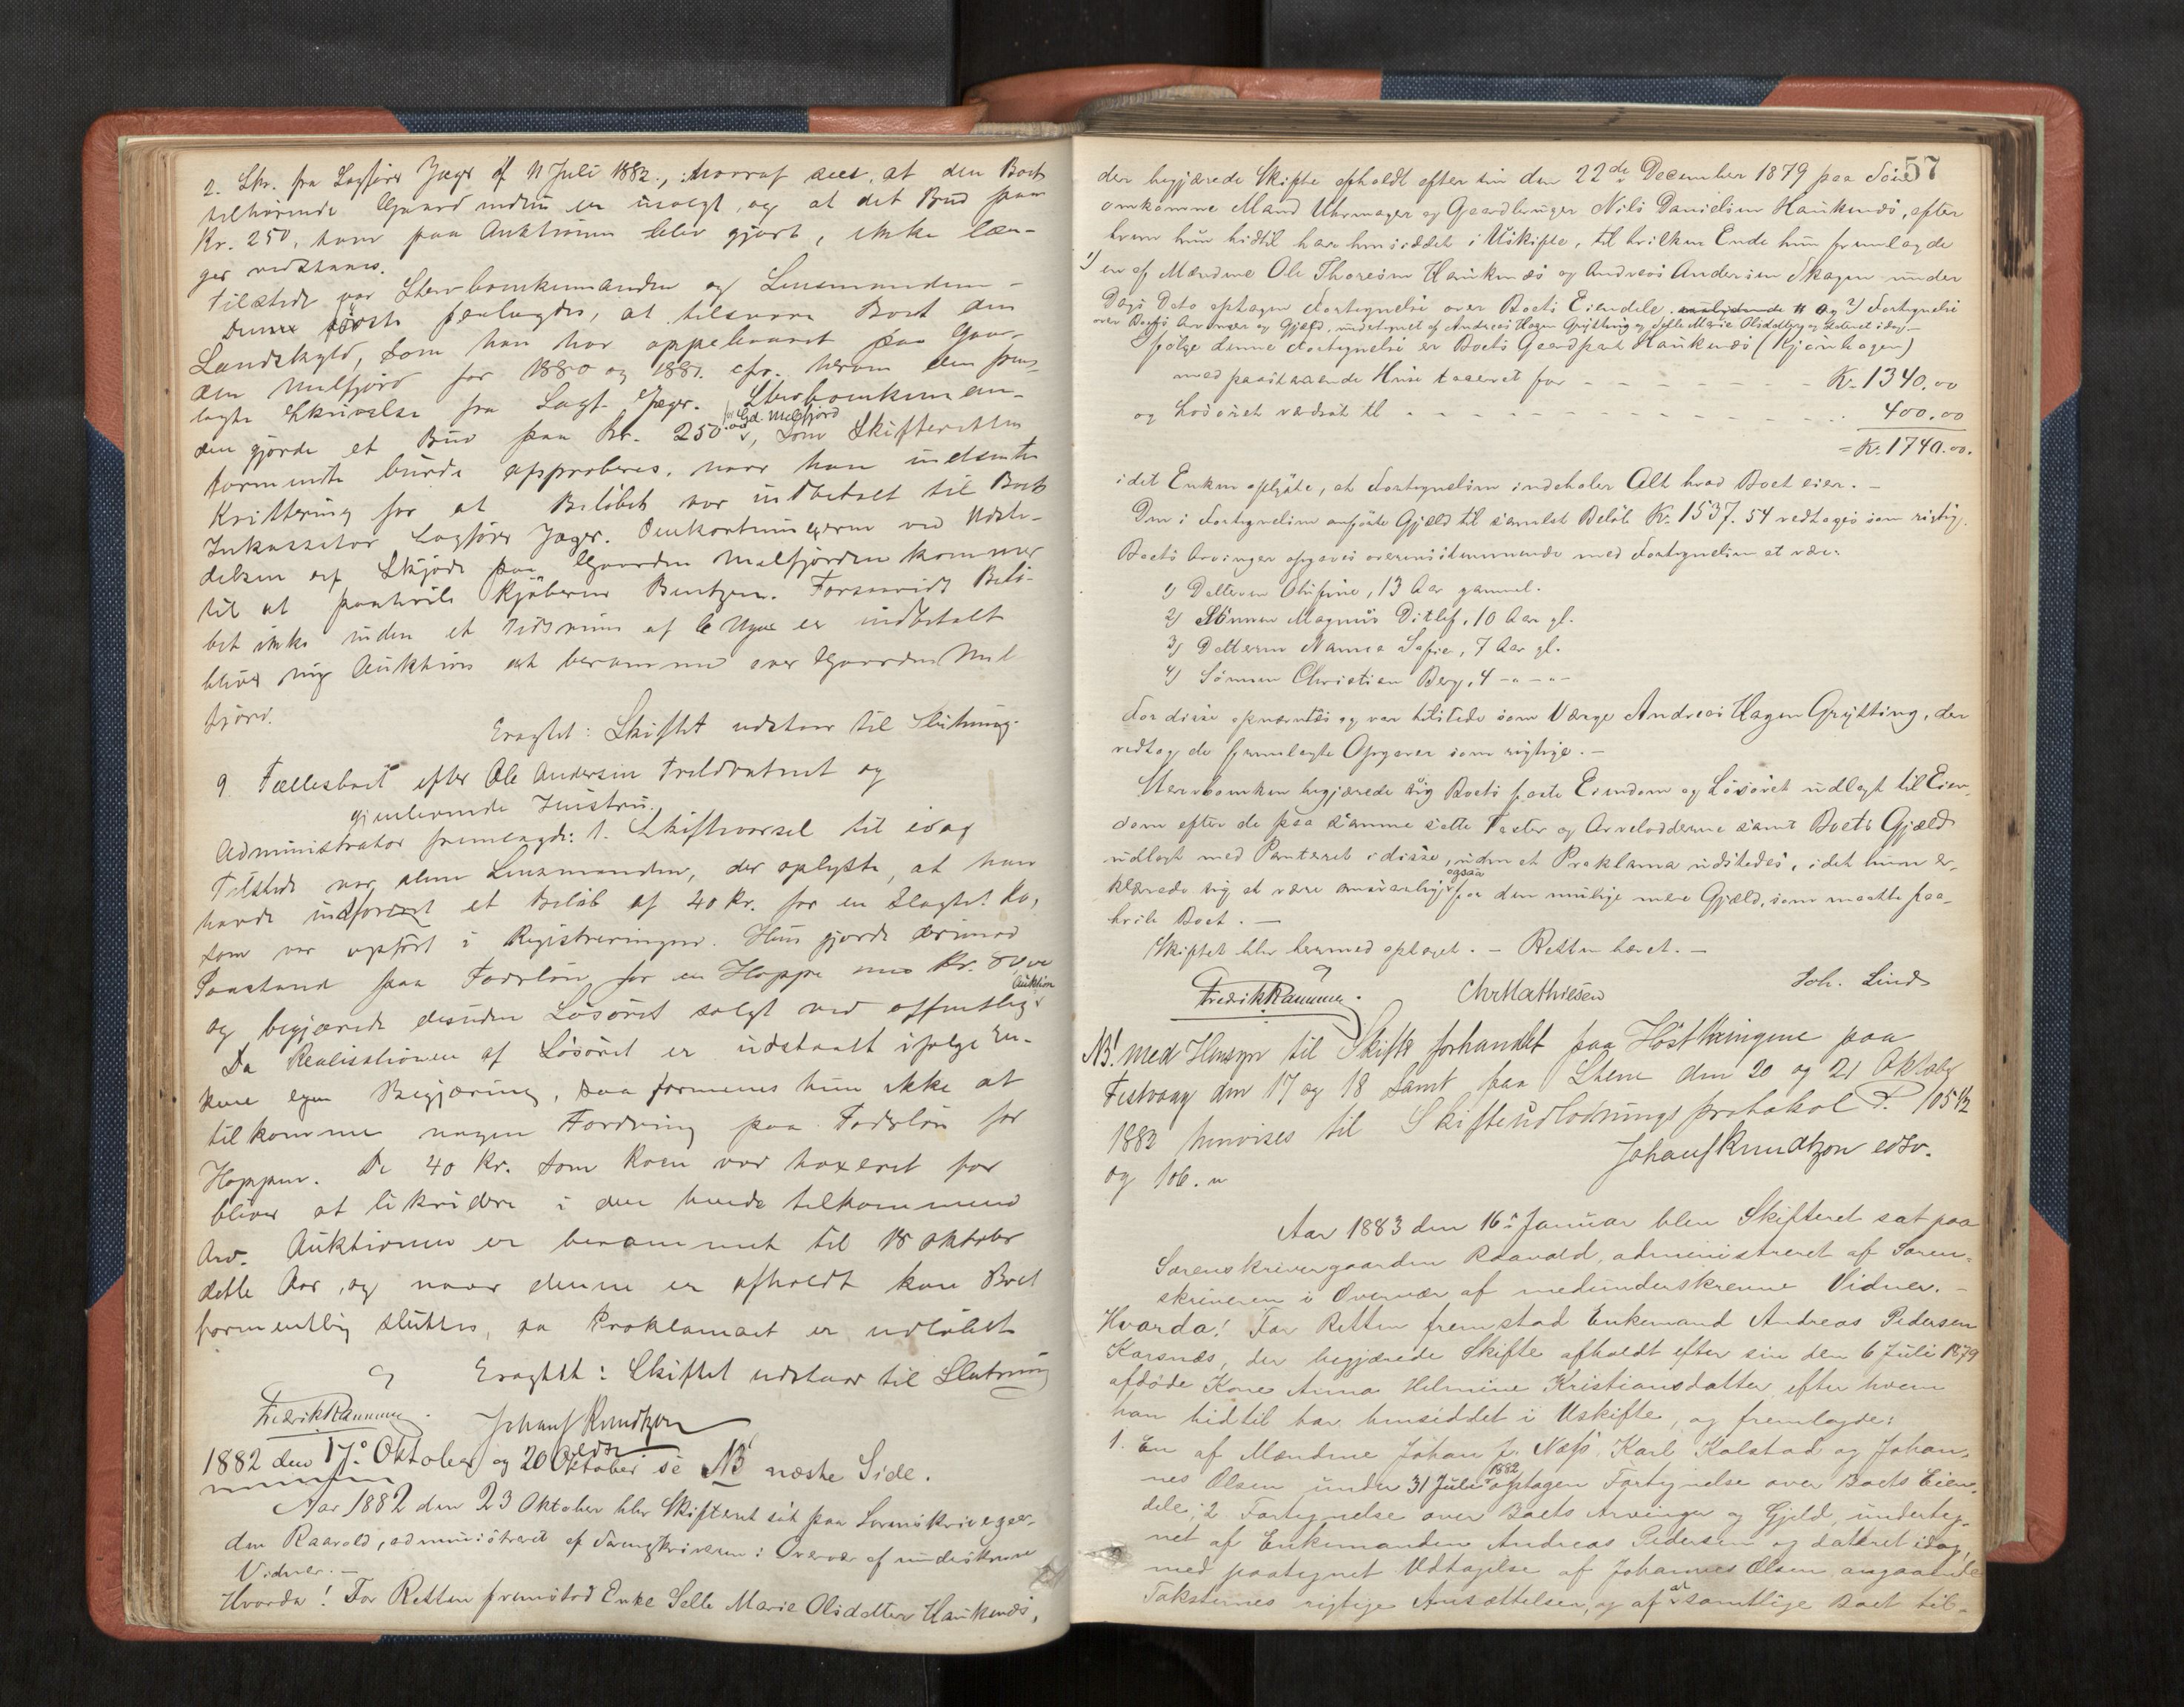 2. Skr. fra Sagfører Jæger af 11 Juli 1882, hvoraf sees, at den Boet
tilhørende Gaard endnu er usolgt, og at det Bud paa
Kr. 250, som paa Auktionen blev gjort, ikke læn-
ger vedstaaes.
Tilstede var Stervboenkemanden og Lensmanden
Denne første paalagdes, at tilsvare Boet den
Landskyld, som han har oppebaaret paa Gaar-
den Melfjord for 1880 og 1881. cfr. herom den frem-
lagte Skrivelse fra Sagf. Jæger. Stervboenkeman-
den gjorde et Bud paa Kr. 250.00 for Gd. Melfjord, som Skifteretten
formente burde approberes, naar han indsendte
Kvittering for at Beløbet var indbetalt til Boets
Inkassator Sagfører Jæger. Omkostningerne ved Udste-
delsen af Skjøde paa Gaarden Melfjorden kommer
til at paahvile Kjøberen Bentzen. Forsaavidt Belø-
bet ikke inden et Tidsrum af 6 Uger er indbetalt
bliver ny Auktion at beramme over Gaarden Mel
fjord.
Eragtet: Skiftet udstaar til Slutning.
9. Fællesboet efter Ole Andersen Troldvatnet og
gjenlevende Hustru.
Administrator fremlagde: 1. Skiftevarsel til idag
Tilstede var alene Lensmanden, der oplyste, at han
havde indfordret et Beløb af 40 Kr. for en slagtet Ko,
som var opført i Registreringen. Hun gjorde derimod
Paastand paa Foderløn for en Hoppe med Kr. 80,00
og begjærede desuden Løsøret solgt ved offentlig Auktion
Da Realisationen af Løsøret er udstaatt ifølge En-
kens egen Begjæring, saa formenes hun ikke at
tilkomme nogen Fordring paa Foderløn for
Hoppen. De 40 Kr. som Koen var taxeret for
bliver at likvidere i den hende tilkommende
Arv. Auktionen er berammet til 18 Oktober
dette Aar, og naar denne er afholdt kan Boet
formentlig sluttes, da Proklamaet er udløbet
Eragtet: Skiftet udstaar til Slutning
Fredrik Ramm. Johans Knudtzon
edsv
1882 den 17de Oktober og 20 Oktober se NB næste Side.
Aar 1882 den 23 Oktober blev Skifteret sat paa Sorenskrivergaar-
den Raavold, administreret af Sorenskriveren i Overvær af underskrevne
Vidner. –
Hvorda! For Retten fremstod Enke Selle Marie Olsdatter Haukenæs,
57
der begjærede Skifte afholdt efter sin den 22de December 1879 paa Søen
omkomne Mand Uhrmager og Gaardbruger Nils Danielsen Haukenæs, efter
hvem hun hidtil har hensiddet i Uskifte, til hvilken Ende hun fremlagde
1) en af Mændene Ole Thoresen Haukenæs og Andreas Andersen Skagen under
Dags Dato optagen Fortegnelse over Boets Eiendele og 2) Fortegnelse
over Boets Arvinger og Gjæld, undertegnet af Andreas Hagen Grytting og Selle Marie Olsdatter og dateret idag. –
Ifølge denne Fortegnelse er Boets Gaardpart Haukenæs (Kjønhagen)
med paastaaende Huse taxeret for - - - Kr. 1340.00
og Løsøret værdsat til - - - 400.00
= Kr. 1740.00.
idet Enken oplyste, at Fortegnelsen indeholder Alt hvad Boet eier. –
Den i Fortegnelsen anførte Gjæld til samlet Beløb Kr. 1537.54 vedtoges som rigtig.
Boets Arvinger opgaves overensstemmende med Fortegnelsen at være:
1) Datteren Olufine, 13 Aar gammel.
2) Sønnen Magnus Ditlef, 10 Aar gl.
3) Datteren Nanna Sofie, 7 Aar gl.
4) Sønnen Christian Berg, 4 - " - " -
For disse opnævntes og var tilstede som Værge Andreas Hagen Grytting, der
vedtog de fremlagte Opgaver som rigtige. –
Stervboenken begjærede sig Boets faste Eiendom og Løsøret udlagt til Eien-
dom efter de paa samme satte Taxter og Arvelodderne samt Boets Gjæld
udlagt med Panteret i disse, uden at Proklama udstedes, idet hun er-
klærede sig at være ansvarlig ogsaa for den mulige mere Gjæld, som maatte paa-
hvile Boet. –
Skiftet blev hermed optaget. – Retten hævet. –
Fredrik Ramm. Chr Mathiesen Joh. Lind
NB! med Hensyn til Skifte forhandlet paa Høstthingene paa
Festvaag den 17 og 18 samt paa Stene den 20 og 21 Oktober
1882 henvises til Skifteudlodningsprotokol P. 105 1/2
og 106. "
Johans Knudtzon edsv.
Aar 1883 den 16de Januar blev Skifteret sat paa
Sorenskrivergaarden Raavold, administreret af Soren-
skriveren i Overvær af medunderskrevne Vidner. –
Hvorda! For Retten fremstod Enkemand Andreas Pedersen
Korsnæs, der begjærede Skifte afholdt efter sin den 6 Juli 1879
afdøde Kone Anna Helmine Kristiansdatter efter hvem
han hidtil har hensiddet i Uskifte, og fremlagde:
1. En af Mændene Johan P. Næss, Karl Kolstad og Johan-
nes Olsen under 31 Juli 1882 optagen Fortegnelse over Boets Eien-
dele; 2 Fortegnelse over Boets Arvinger og Gjeld, underteg-
net af Enkemanden Andreas Pedersen og dateret idag,
med paategnet Vedtagelse af Johannes Olsen angaaende
Taksternes rigtige Ansættelse, og af at samtlige Boet til-